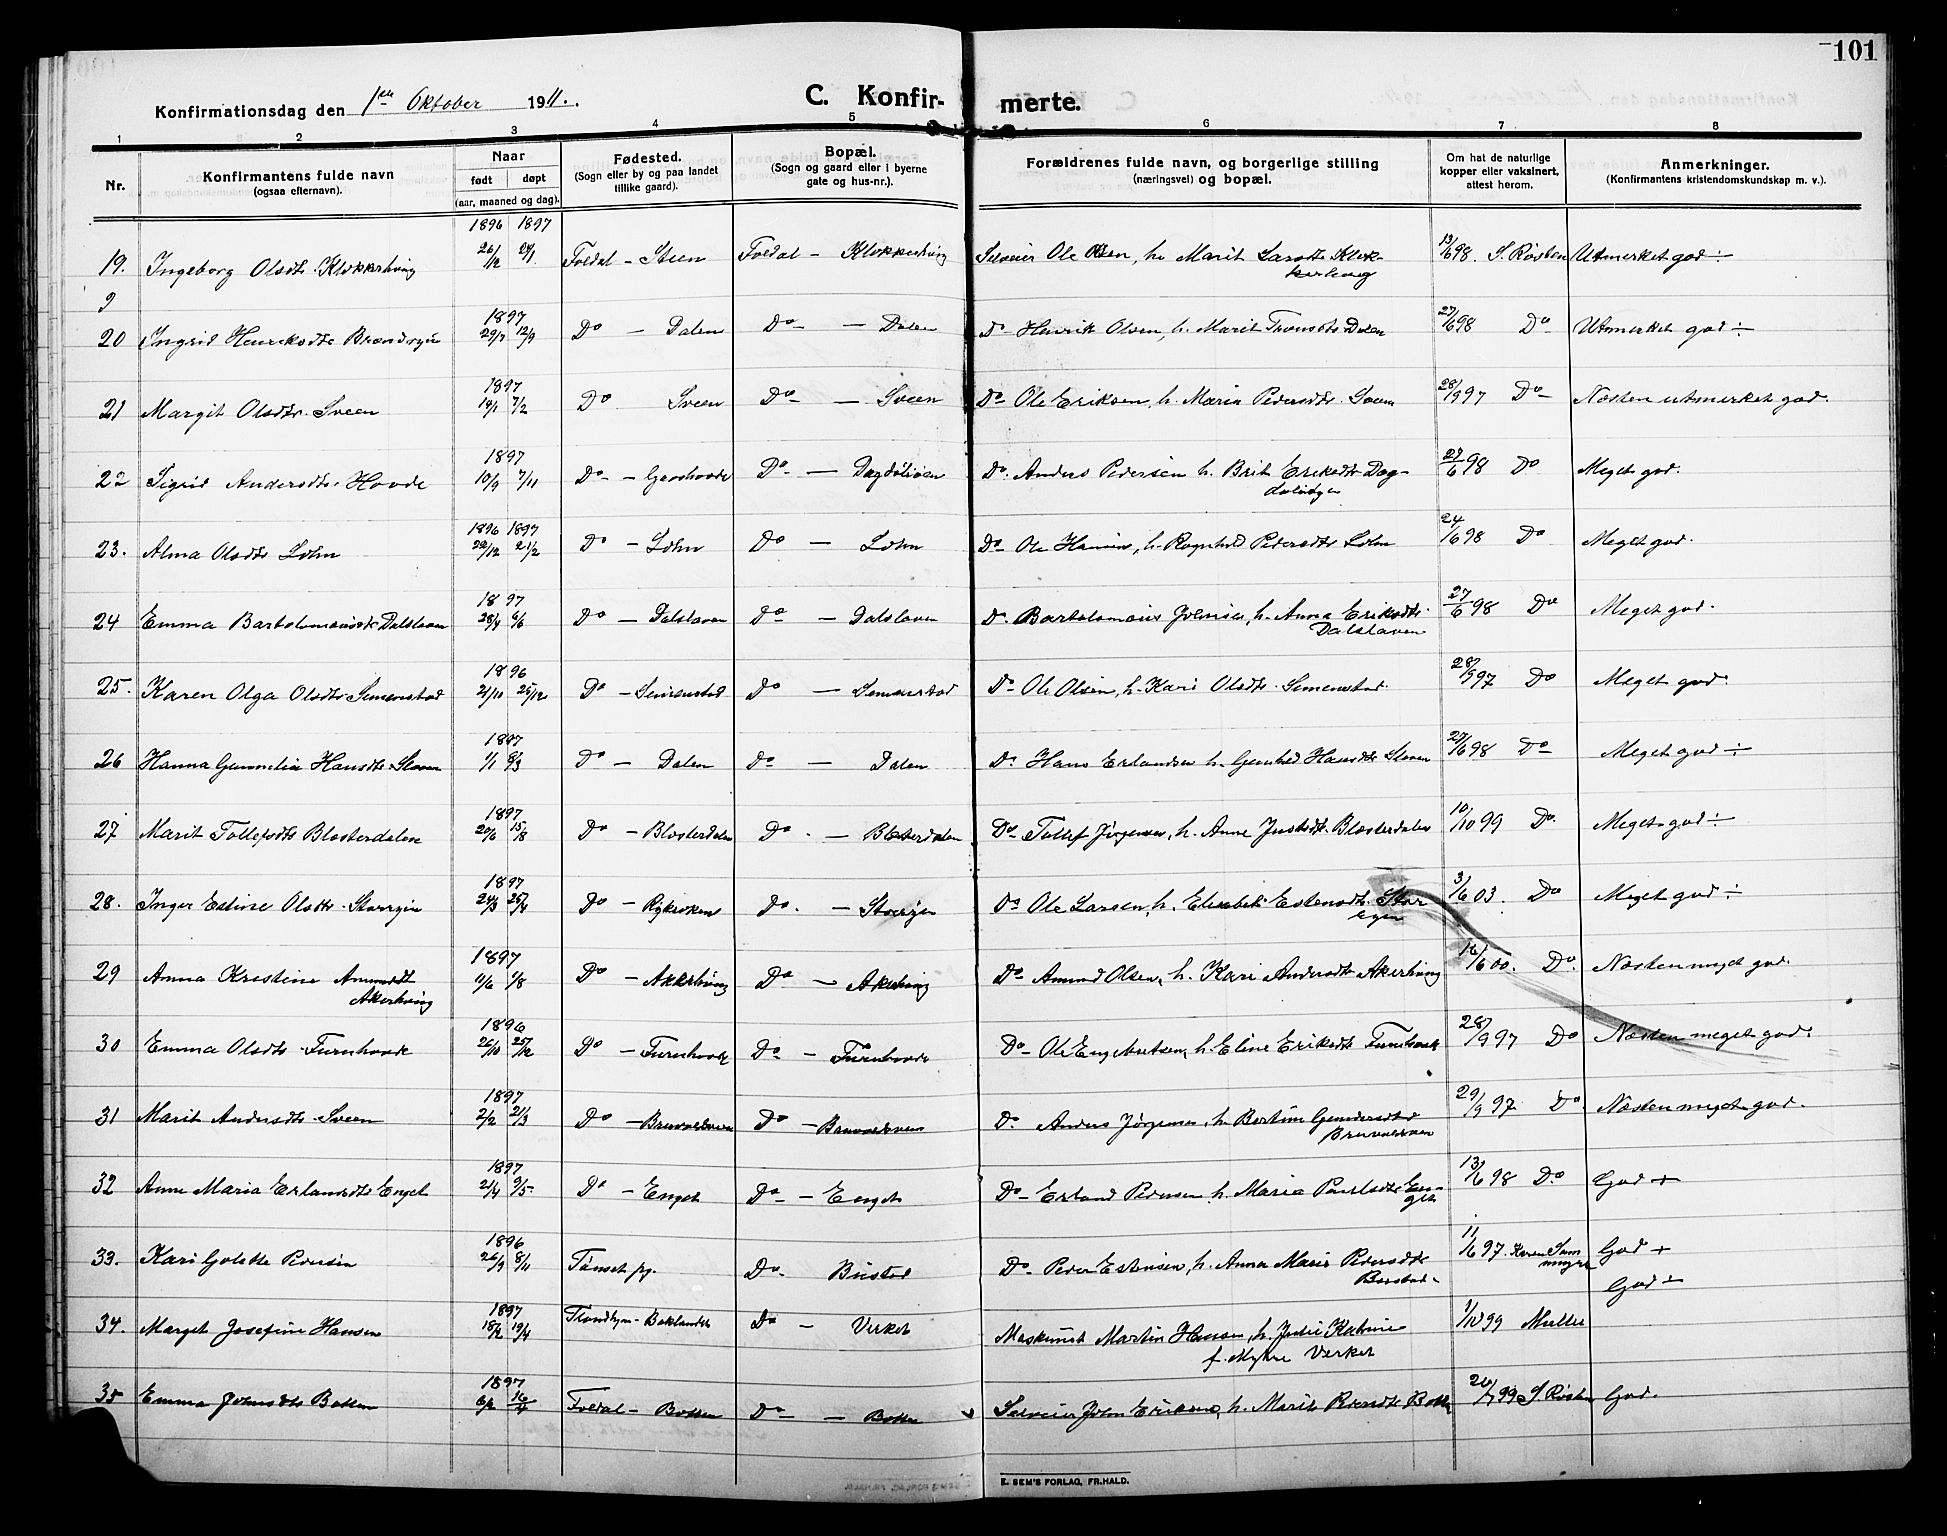 101
Konfirmationsdag den 1ste Oktober 1911.
C. Konfir- merte.
1 2 3 4 5 6 7 8
Nr.
Konfirmantens fulde navn
(ogsaa efternavn).
Naar
født døpt
(aar, maaned og dag).
Fødested.
(Sogn eller by og paa landet
tillike gaard).
Bopæl.
(Sogn og gaard eller i byerne
gate og hus-nr.).
Forældrenes fulde navn, og borgerlige stilling
(næringsvei) og bopæl.
Om hat de naturlige
kopper eller vaksinert,
attest herom.
Anmerkninger.
(Konfirmantens kristendomskundskap m. v.).
1896 1897
19. Ingeborg Olsdtr. Klokkerhaug 26/12 24/1 Foldal – Steen Foldal – Klokkerhaug Selveier Ole Olsen, h. Marit Larsdtr Klok- 13/6 98. S. Røsten Utmerket god ÷
kerhaug
9
1897
20 Ingrid Henriksdtr 29/7 12/9 Do – Dalen Do – Dalen Do Henrik Olsen, h. Marit Dalen 27/6 98 Do Utmerket god ÷
1897
21 Margit Olsdtr. Sveen 14/1 7/2 Do Sveen Do – Sveen Do Ole Eriksen, h. Maria Pedersdtr. Sveen 28/9 97 Do Næsten utmerket god.
1897
22 Sigrid Andersdtr. Hovde 10/9 7/11 Do – Do – Do Anders Pedersen h. Brit Eriksdtr Dag- 27/6 98 Do Meget god.
1896 1897
23. Alma Olsdtr Lohn 29/12 21/2 Do – Lohn Do – Lohn Do Ole Hansen, h. Ragnhild Pedersdtr Lohn 24/6 98 Do Meget god.
1897
24 Emma Dalslaaen 28/4 6/6 Do – Dalslaaen Do – Dalslaaen Do Bartolomæus Joensen, h. Anna Eriksdtr. 27/6 98 Do Meget god.
Dalslaaen
1896
25. Karen Olga Olsdtr. Simenstad 21/10 25/12 Do – Simenstad Do – Simenstad Do Ole Olsen, h. Kari Olsdtr. Simenstad. 28/9 97 Do Meget god.
1897
26 Hanna Hansdtr. 1/1 Do – Dalen Do – Dalen Do Hans Erlandsen h. Hansdtr 27/6 98 Do Meget god ÷
1897
27 Marit Tollefsdtr Blæsterdalen 20/6 15/8 Do – Blæsterdalen Do – Blæsterdalen Do Tollef Jørgensen, h. Anne Blæsterdalen 10/10 99 Do Meget god ÷
1897
28. Inger Estine Olsdtr. Storøyen 24/3 25/4 Do – Do – Storøyen Do Ole Larsen, h. Elisabet Estensdtr. Stor 3/6 03. Do Meget god ÷
øyen
1897
29 Anna Kristine Amundsdt. 11/6 1/8 Do – Akerhaug Do – Akerhaug Do Amund Olsen, h. Kari Andersdtr Akerhaug 16/6 00. Do Næsten meget god.
Akerhaug
1896
30 Emma Olsdtr. Furuhovde 26/10 25/12 Do – Furuhovde Do – Furuhovde Do Ole Engebretsen, h. Eline Eriksdtr Furuhovde 28/9 97 Do Næsten meget god.
1897
31 Marit Andersdtr. Sveen 2/2 21/3 Do – Do – Do Anders Jørgensen, h. 29/9 97. Do Næsten meget god.
1897
32 Anne Maria Erlandsdtr Enget 21/4 9/5 Do – Enget Do – Enget Do Erland Pedersen h. Maria Paulsdtr En- 13/6 98 Do God +
get
1896
33. Kari Pedersen 26/9 8/11 Tønset pg. Do Do Peder Estensen, h. Anna Marie Pedersdtr 11/6 97. Karen God +
God ÷
1897
34. Marget Josefine Hansen 18/2 19/4 Trondhjem – Baklandet Do – Verket Maskinist Martin Hansen, h. Julie Katrine 1/10 99 Müller
f. Myhre Verket
1897
35 Emma Johnsdtr Botten 6/2 16/4 Foldal – Botten Do – Botten Selveier John Eriksen, h. Marit Botten 26/7 99 S. Røsten God.
E. SEM'S FORLAG, FR.HALD.